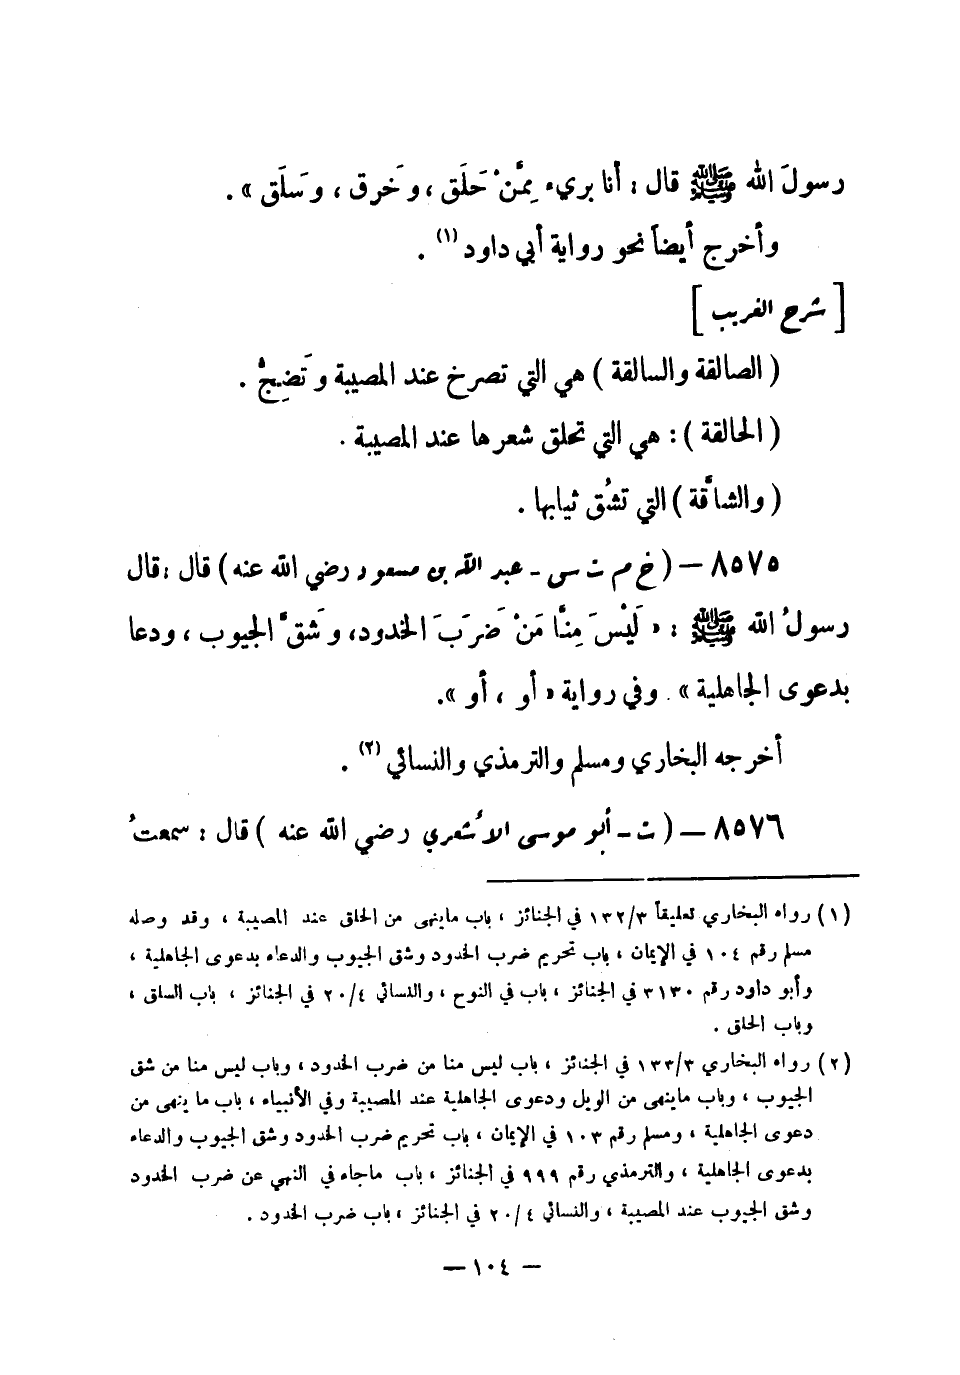 رسولَ الله ﷺ قال : أنا بريء مِمَّنْ حَلَق ، وخَرق ، وسَلَق » .
وأخرج أيضاً نحو رواية أبي داود (١) .
[ شرح الغريب ]
( الصالقة والسالقة ) هي التي تصرخ عند المصيبة وتَضِجُّ .
( الحالقة ) : هي التي تحلق شعرها عند المصيبة .
( والشاقَّة ) التي تشُق ثيابها .
٨٥٧٥ — ( خ م ت س - عبد الله بن مسعود رضي الله عنه ) قال : قال
رسولُ الله ﷺ : « لَيْسَ مِنَّا مَنْ ضَرَبَ الخدود، وشَقَّ الجيوب ، ودعا
بدعوى الجاهلية » . وفي رواية « أو ، أو ».
أخرجه البخاري ومسلم والترمذي والنسائي (٢) .
٨٥٧٦ — ( ت - أبو موسى الأشعري رضي الله عنه ) قال : سمعتُ
(١) رواه البخاري تعليقاً ١٣٢/٣ في الجنائز ، باب ماينهى من الحلق عند المصيبة ، وقد وصله
مسلم رقم ١٠٤ في الإيمان ، باب تحريم ضرب الخدود وشق الجيوب والدعاء بدعوى الجاهلية ،
وأبو داود رقم ٣١٣٠ في الجنائز ، باب في النوح ، والنسائي ٢٠/٤ في الجنائز ، باب السلق ،
وباب الحلق .
(٢) رواه البخاري ١٣٣/٣ في الجنائز ، باب ليس منا من ضرب الخدود ، وباب ليس منا من شق
الجيوب ، وباب ماينهى من الويل ودعوى الجاهلية عند المصيبة وفي الأنبياء ، باب ما ينهى من
دعوى الجاهلية ، ومسلم رقم ١٠٣ في الإيمان ، باب تحريم ضرب الخدود وشق الجيوب والدعاء
بدعوى الجاهلية ، والترمذي رقم ٩٩٩ في الجنائز ، باب ماجاء في النهي عن ضرب الخدود
وشق الجيوب عند المصيبة ، والنسائي ٢٠/٤ في الجنائز ، باب ضرب الخدود .
— ١٠٤ —